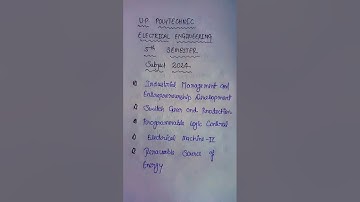 U.P. POLYTECHNIC
ELECTRICAL ENGINEERING
5th SEMESTER
Subject 2024
Industrial Management and
Entrepreneurship Development
Switch Gear and Protection
Programmable Logic Control
Electrical Machine-II
Renewable Source of
Energy